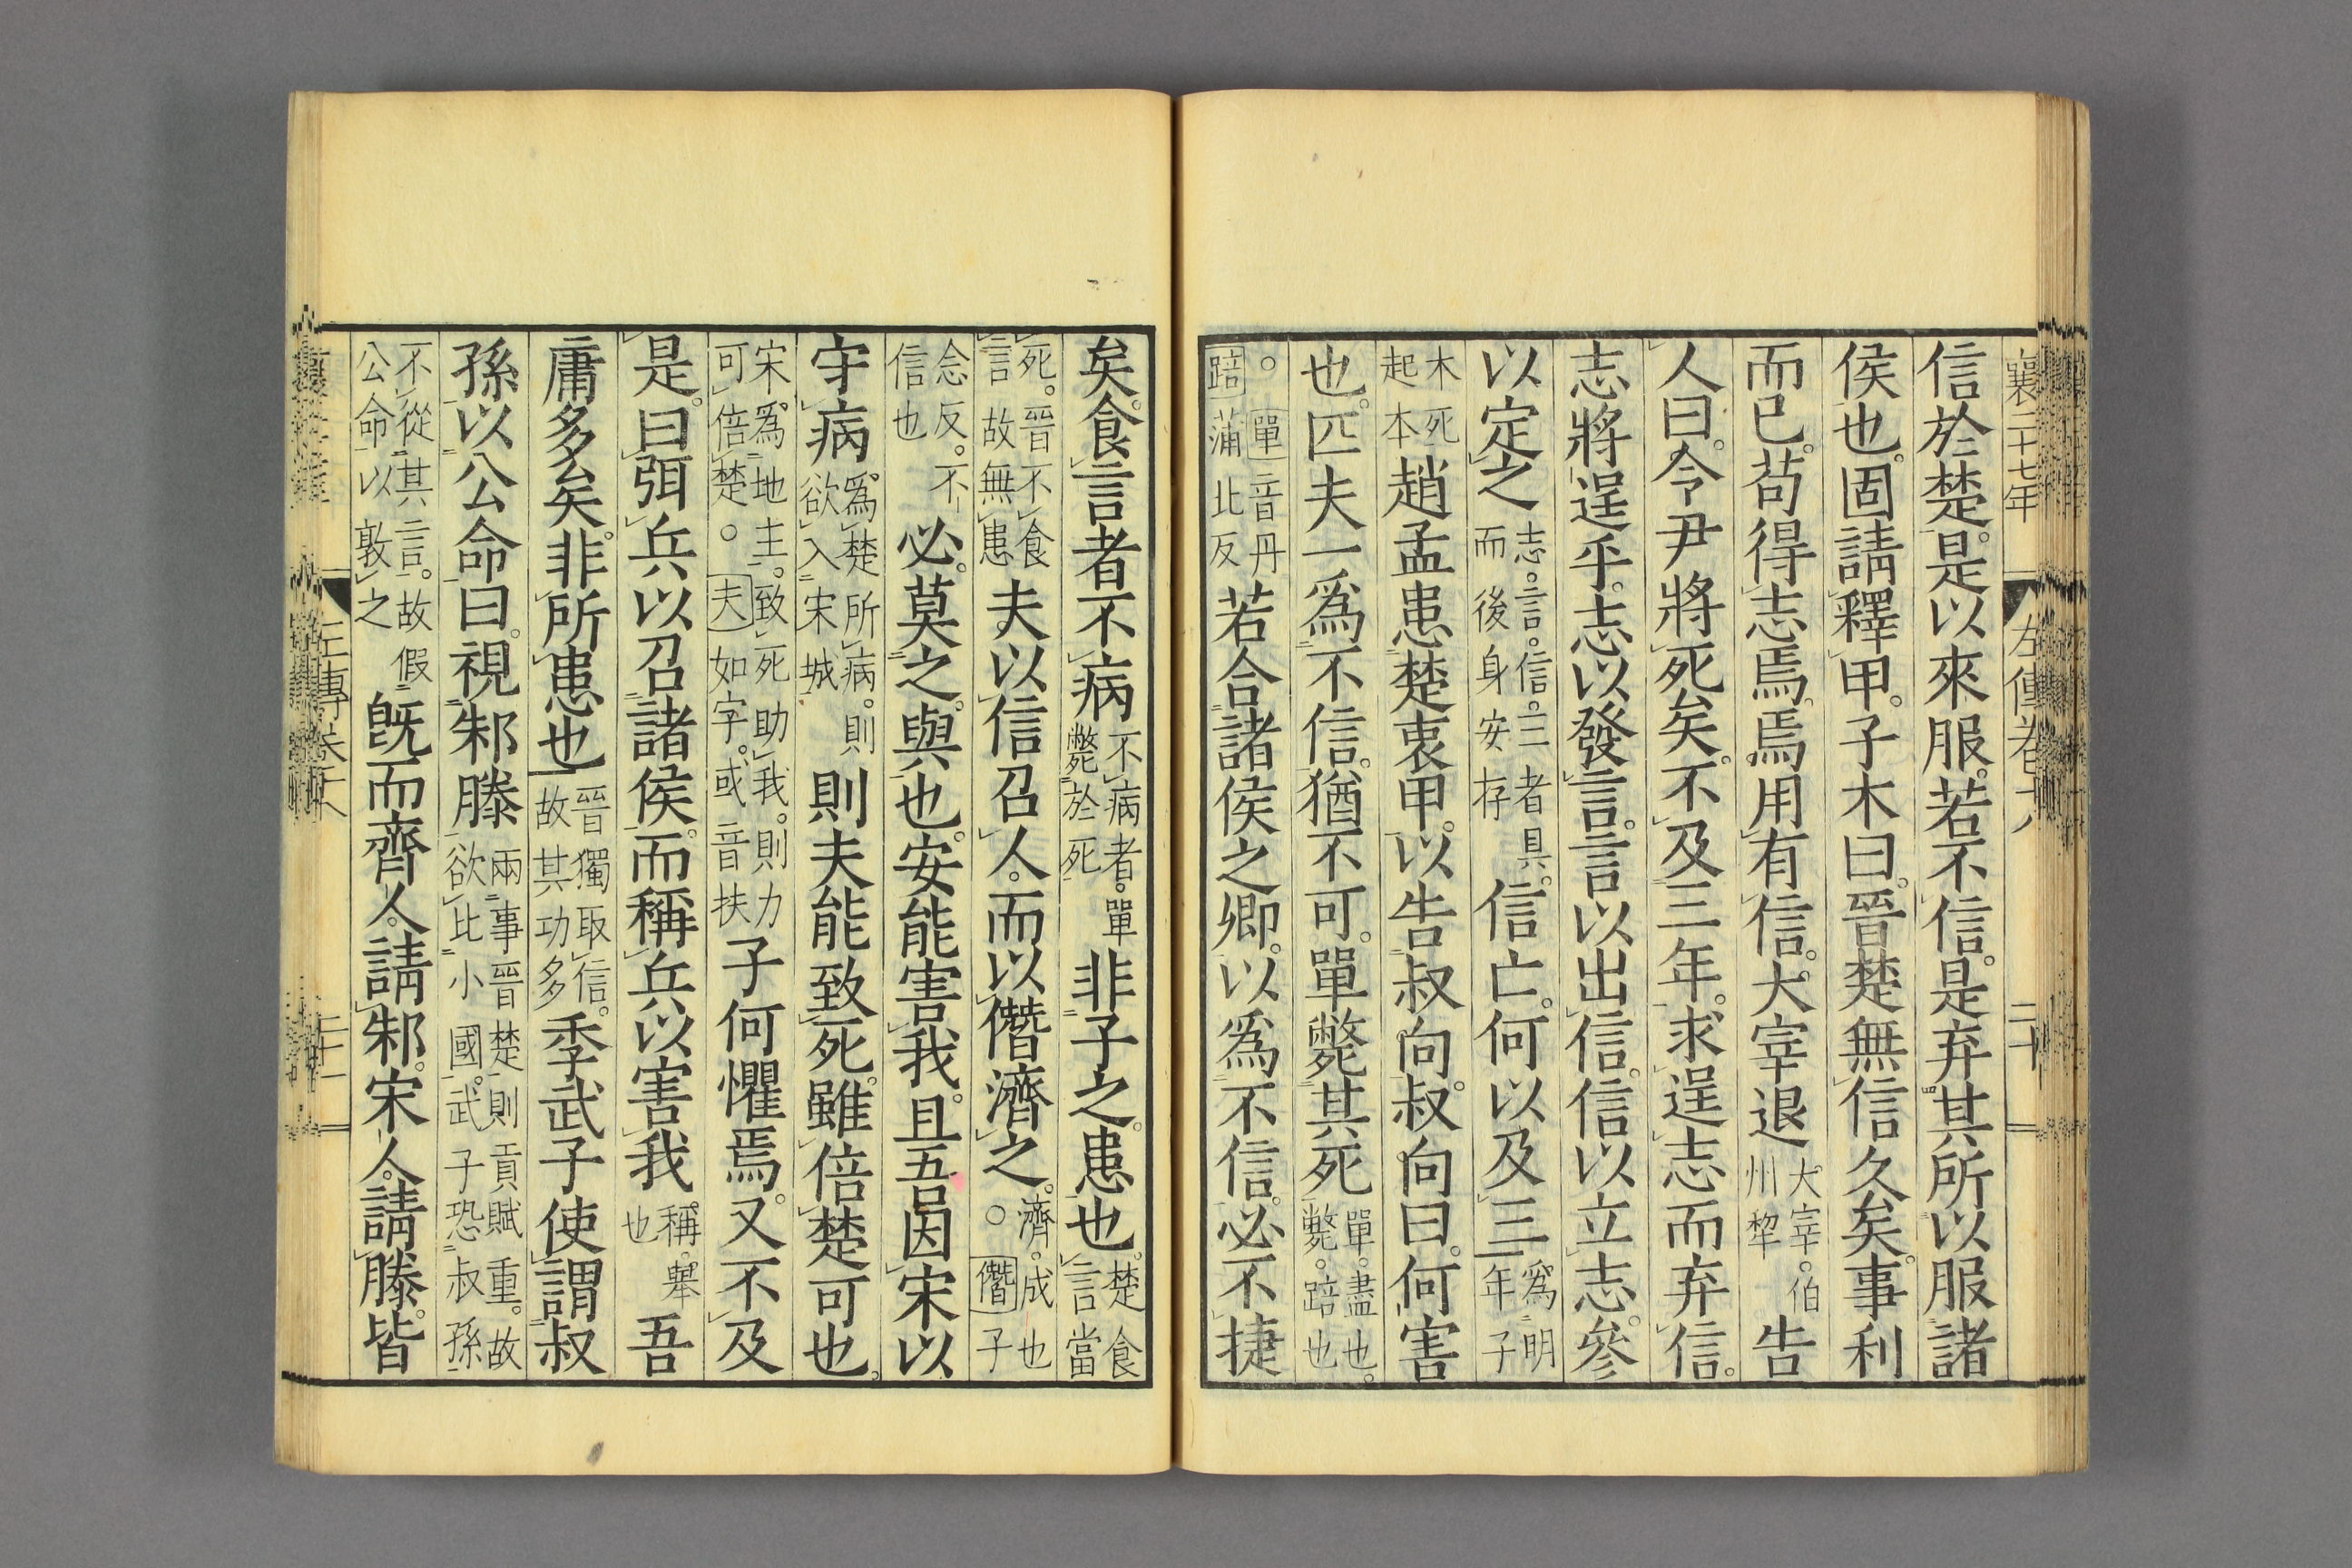 襄二十七年　左傳卷十八　二十
信於楚。是以來服。若不信。是弃其所以服諸
侯也。固請釋甲。子木曰。晉楚無信久矣。事利
而已。苟得志焉。焉用有信。大宰退大宰。伯州犂告
人曰。令尹將死矣。不及三年。求逞志而弃信。
志將逞乎。志以發言。言以出信。信以立志。參
以定之志。言。信。三者具。而後身安存信亡。何以及三爲明年子
木死起本趙孟患楚衷甲。以告叔向。叔向曰。何害
也。匹夫一爲不信。猶不可。單斃其死單。盡也。斃。踣也
。單音丹踣蒲北反若合諸侯之卿。以爲不信。必不捷
矣。食言者不病不病者。單斃於死非子之患也。楚食言當
死。晉不食言故無患夫以信召人。而以僭濟之。濟。成也。○僭子
念反。不信也必。莫之與也。安能害我。且吾因宋以
守病爲楚所病。則欲入宋城則夫能致死。雖倍楚可也。
宋爲地主。致死助我。則力可倍楚。○夫如字。或音扶子何懼焉。又不及
是。曰弭兵以召諸侯。而稱兵以害我稱。舉也吾
庸多矣。非所患也晉獨取信。故其功多季武子使謂叔
孫以公命曰。視邾滕兩事晉楚則貢賦重。故欲比小國。武子恐叔孫
不從其言。故假公命以敦之既而齊人請邾。宋人請滕。皆